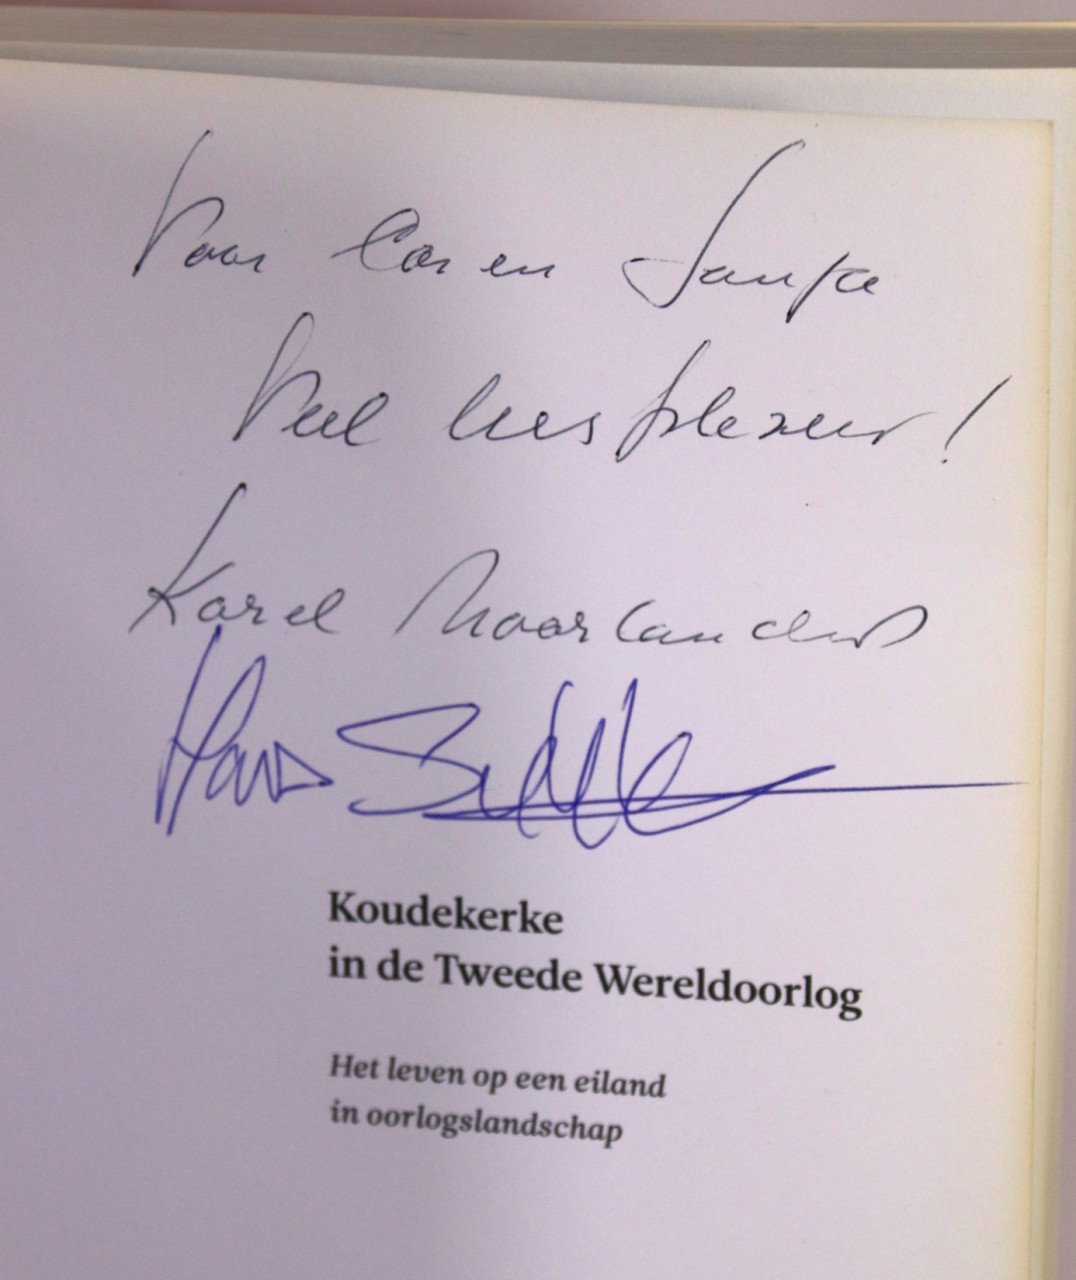 Voor Cor en Sanja
Veel leesplezier!
Karel
Hans
Koudekerke
in de Tweede Wereldoorlog
Het leven op een eiland
in oorlogslandschap